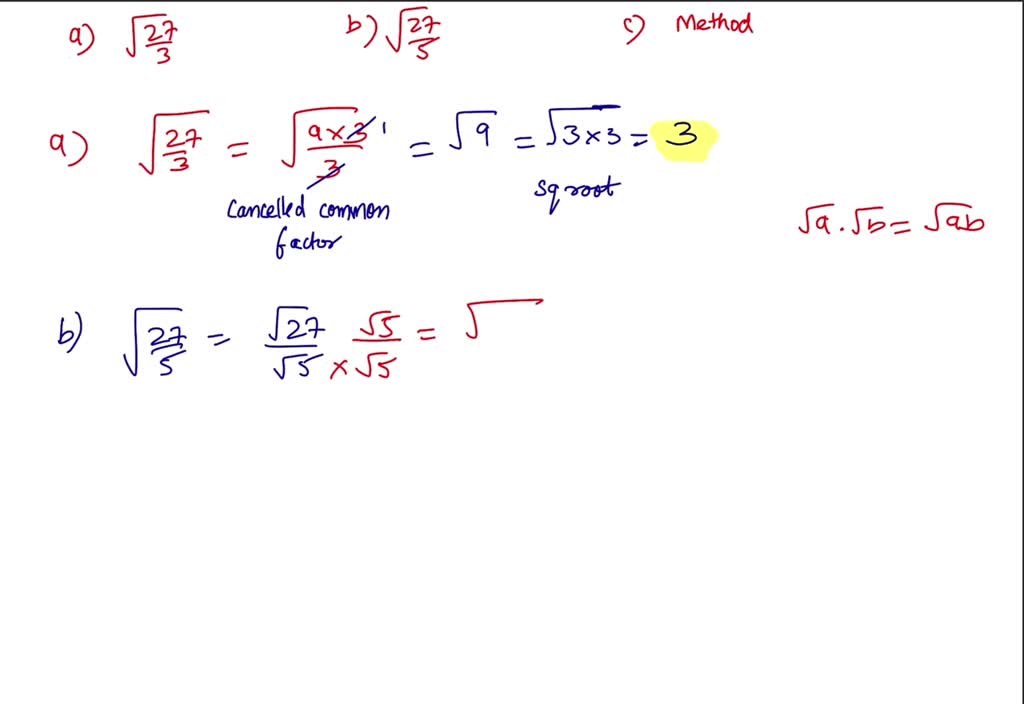 a) √27/3 b) √27/5 c) Method
a) √27/3 = √9×3/3 ¹ = √9 = √3×3 = 3
Cancelled common factor
sq root
√a . √b = √ab
b) √27/5 = √27/√5 × √5/√5 = √